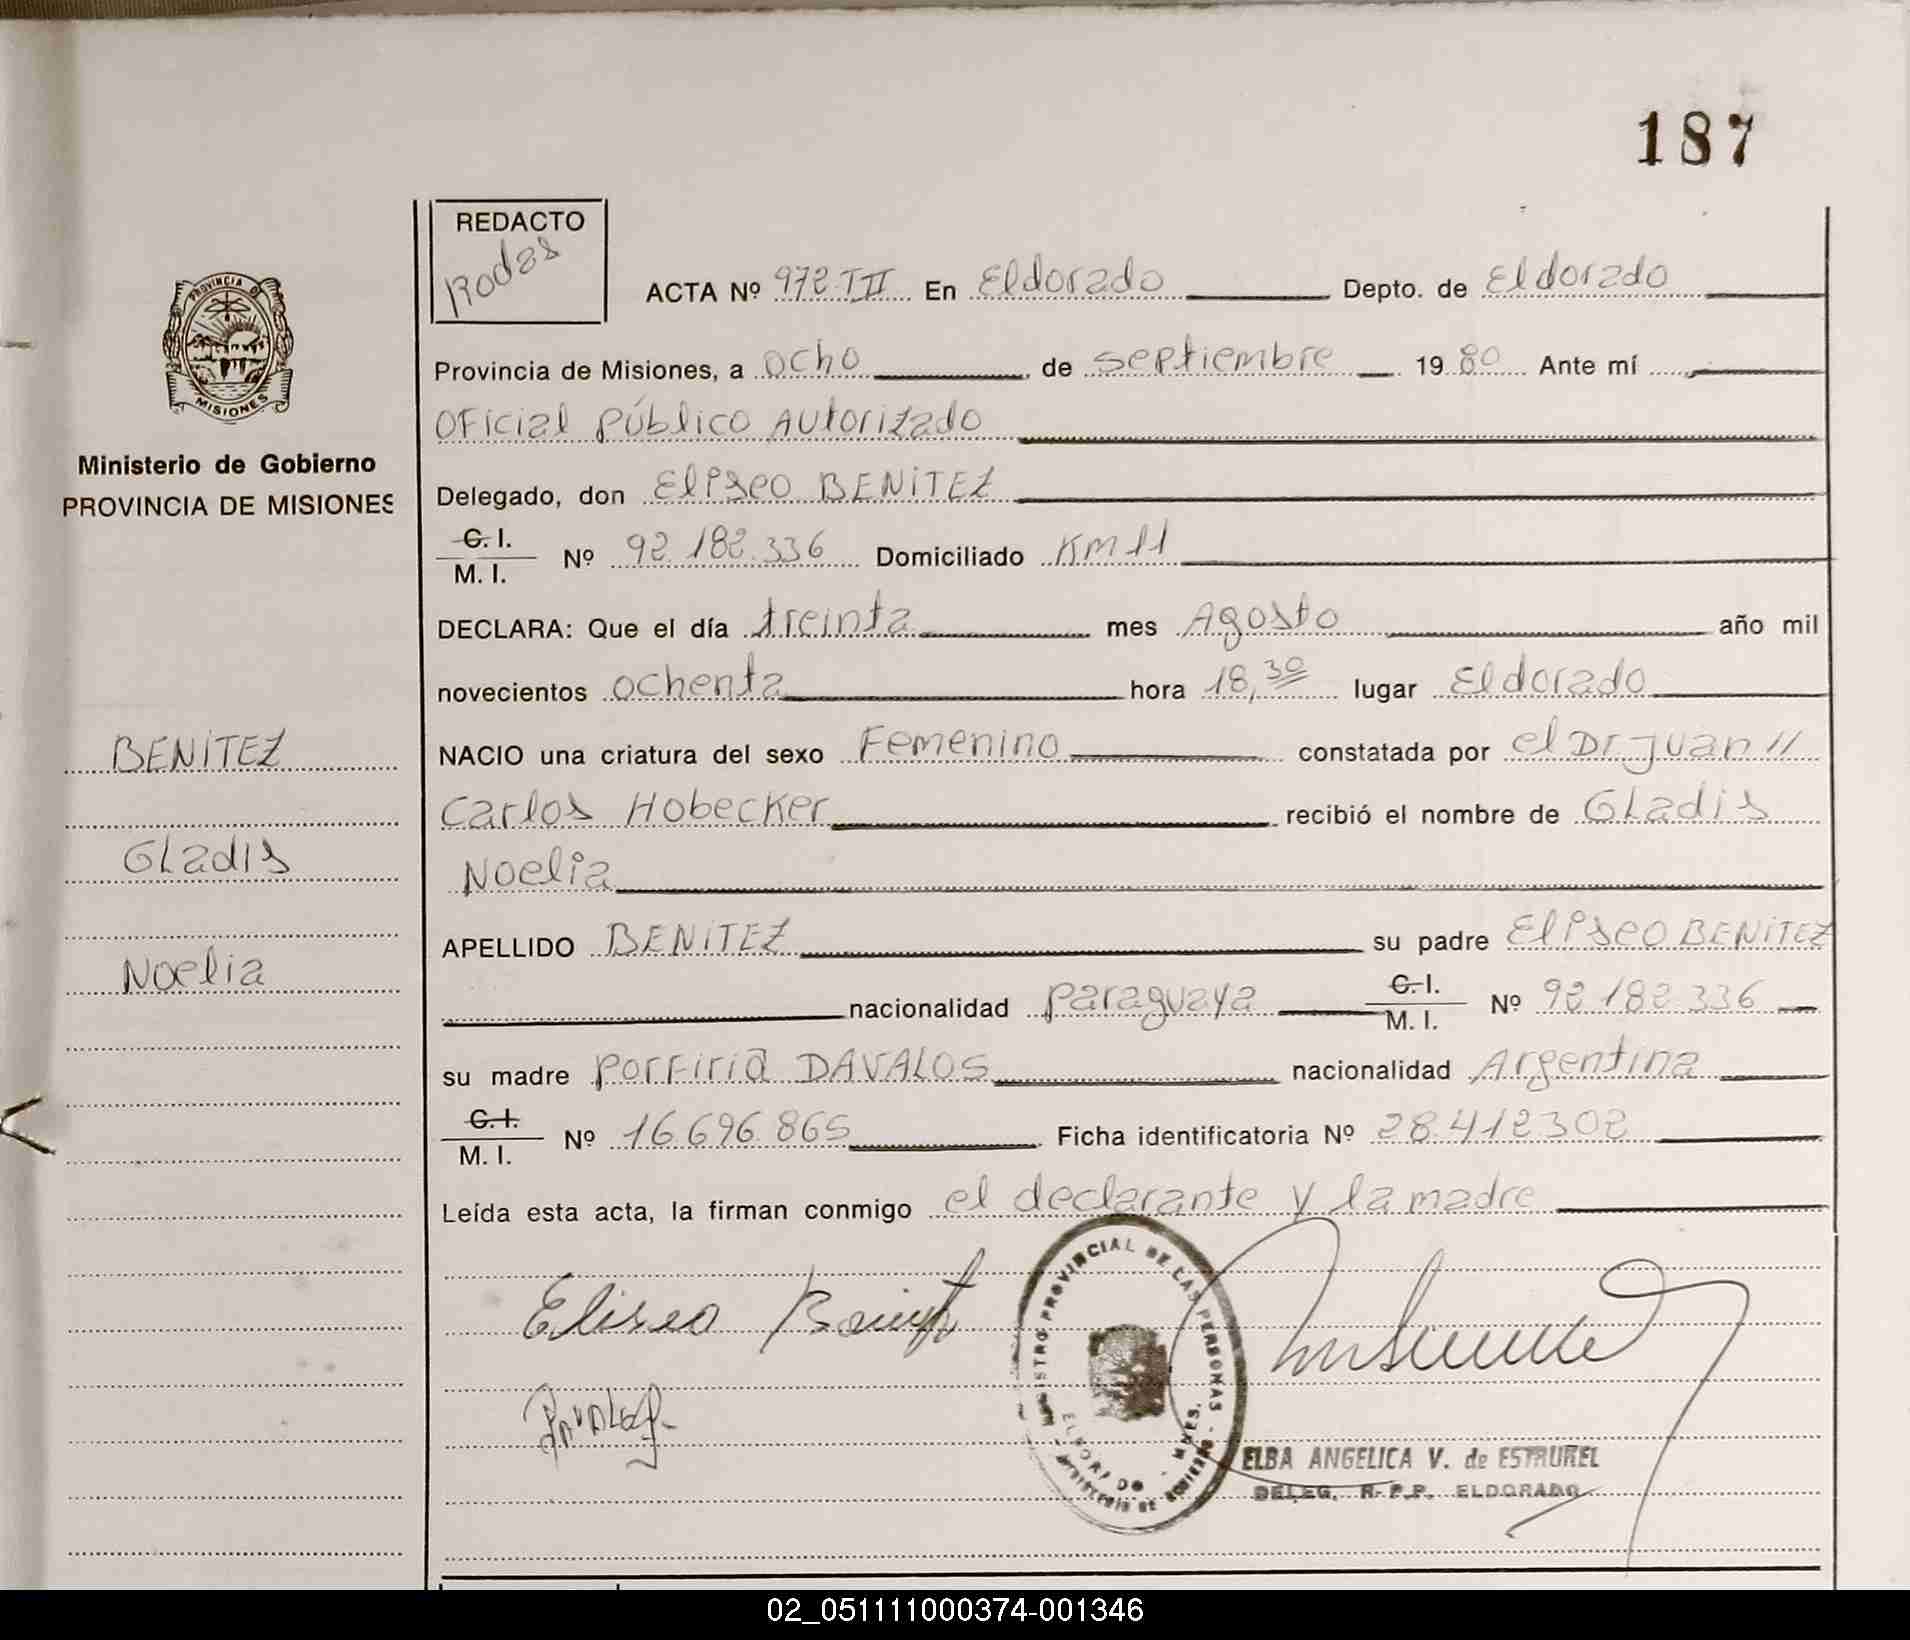 187
REDACTO
Rodas
ACTA Nº 972 T II En Eldorado Depto. de Eldorado
PROVINCIA DE
MISIONES
Provincia de Misiones, a ocho de septiembre 1980 Ante mí
Oficial Público Autorizado
Ministerio de Gobierno
PROVINCIA DE MISIONES
Delegado, don Eliseo BENITEZ
C. I.
M. I. Nº 92.182.336 Domiciliado Km 11
DECLARA: Que el día treinta mes Agosto año mil
novecientos ochenta hora 18,30 lugar Eldorado
BENITEZ
NACIO una criatura del sexo Femenino constatada por el Dr Juan //
Carlos Hobecker recibió el nombre de GLadis
GLadis
Noelia
APELLIDO BENITEZ su padre Eliseo BENITEZ
Noelia
nacionalidad paraguaya C. I.
M. I. Nº 92.182.336
su madre Porfiria DAVALOS nacionalidad Argentina
C. I.
M. I. Nº 16.696.865 Ficha identificatoria Nº 28.412302
Leída esta acta, la firman conmigo el declarante y la madre
Eliseo Benit
REGISTRO PROVINCIAL DE LAS PERSONAS - MINISTERIO DE GOBIERNO
ELDORADO - MNES.
ELBA ANGELICA V. de ESTRUREL
DELEG. R. P. P. ELDORADO
02_051111000374-001346